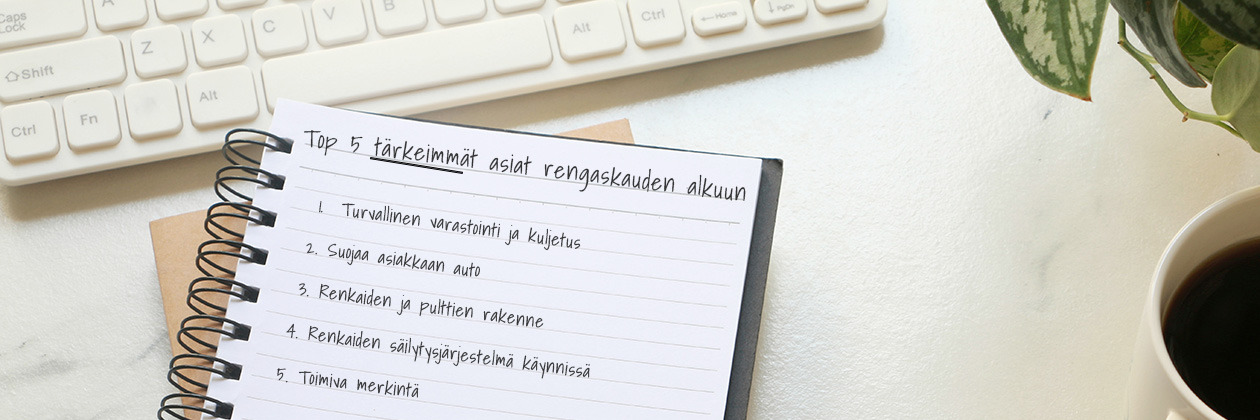 Caps Lock
A
Z
X
C
V
B
Shift
Ctrl
Fn
Alt
Alt
Ctrl
Home
PgDn
Top 5 tärkeimmät asiat rengaskauden alkuun
1. Turvallinen varastointi ja kuljetus
2. Suojaa asiakkaan auto
3. Renkaiden ja pulttien rakenne
4. Renkaiden säilytysjärjestelmä käynnissä
5. Toimiva merkintä